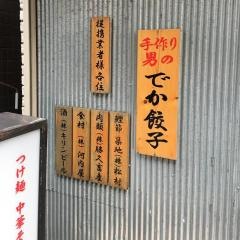 手作り
男の
でか餃子
提携業者様各位
鰹節 築地(株)松村
肉類(有)勝又畜産
食材(株)河内屋
酒(株)キリンビール
つけ麺 中華そ